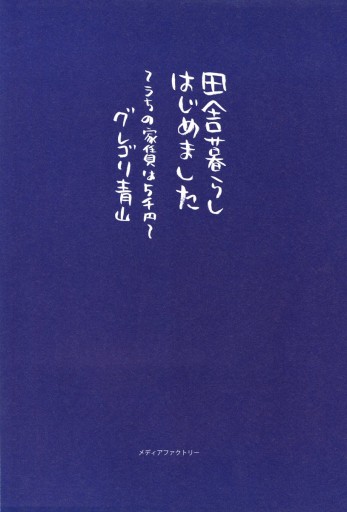 田舎暮らし
はじめました
〜うちの家賃は5千円〜
グレゴリ青山
メディアファクトリー